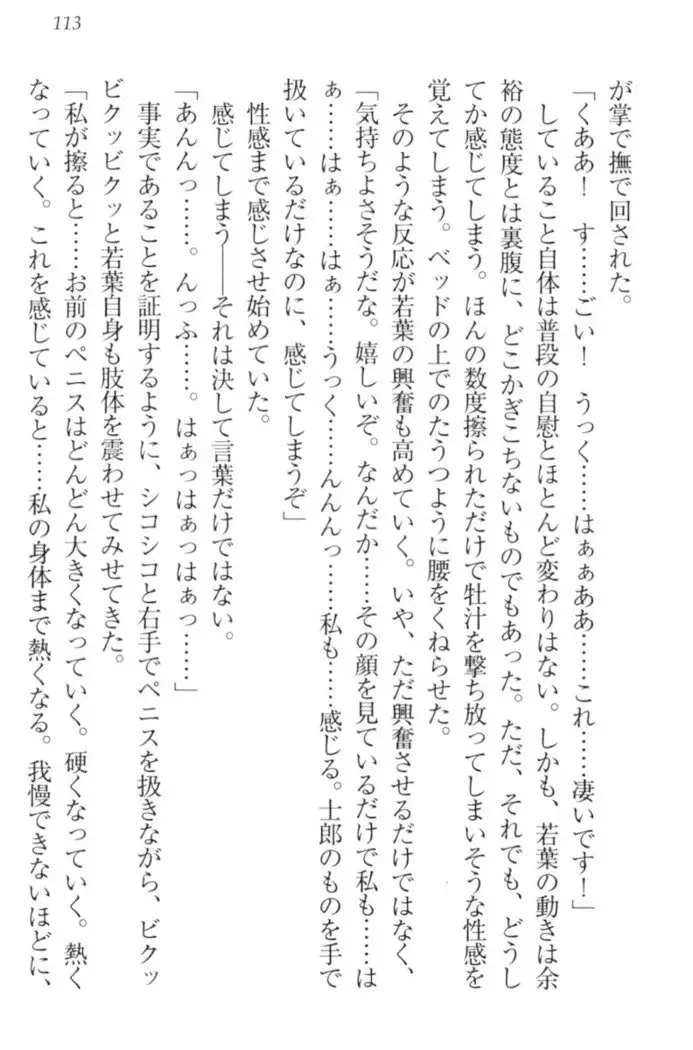 113
が掌で撫で回された。
「くああ！　す……ごい！　うっく……はぁぁああ……これ……凄いです！」
していること自体は普段の自慰とほとんど変わりはない。しかも、若葉の動きは余
裕の態度とは裏腹に、どこかぎこちないものでもあった。ただ、それでも、どうし
てか感じてしまう。ほんの数度擦られただけで牡汁を撃ち放ってしまいそうな性感を
覚えてしまう。ベッドの上でのたうつように腰をくねらせた。
そのような反応が若葉の興奮も高めていく。いや、ただ興奮させるだけではなく、
「気持ちよさそうだな。嬉しいぞ。なんだか……その顔を見ているだけで私も……は
ぁ……はぁ……はぁ……うっく……んんんっ……私も……感じる。士郎のものを手で
扱いているだけなのに、感じてしまうぞ」
性感まで感じさせ始めていた。
感じてしまう――それは決して言葉だけではない。
「あんんっ……。んっふ……。はぁっはぁっはぁっ……」
事実であることを証明するように、シコシコと右手でペニスを扱きながら、ビクッ
ビクッビクッと若葉自身も肢体を震わせてみせてきた。
「私が擦ると……お前のペニスはどんどん大きくなっていく。硬くなっていく。熱く
なっていく。これを感じていると……私の身体まで熱くなる。我慢できないほどに、